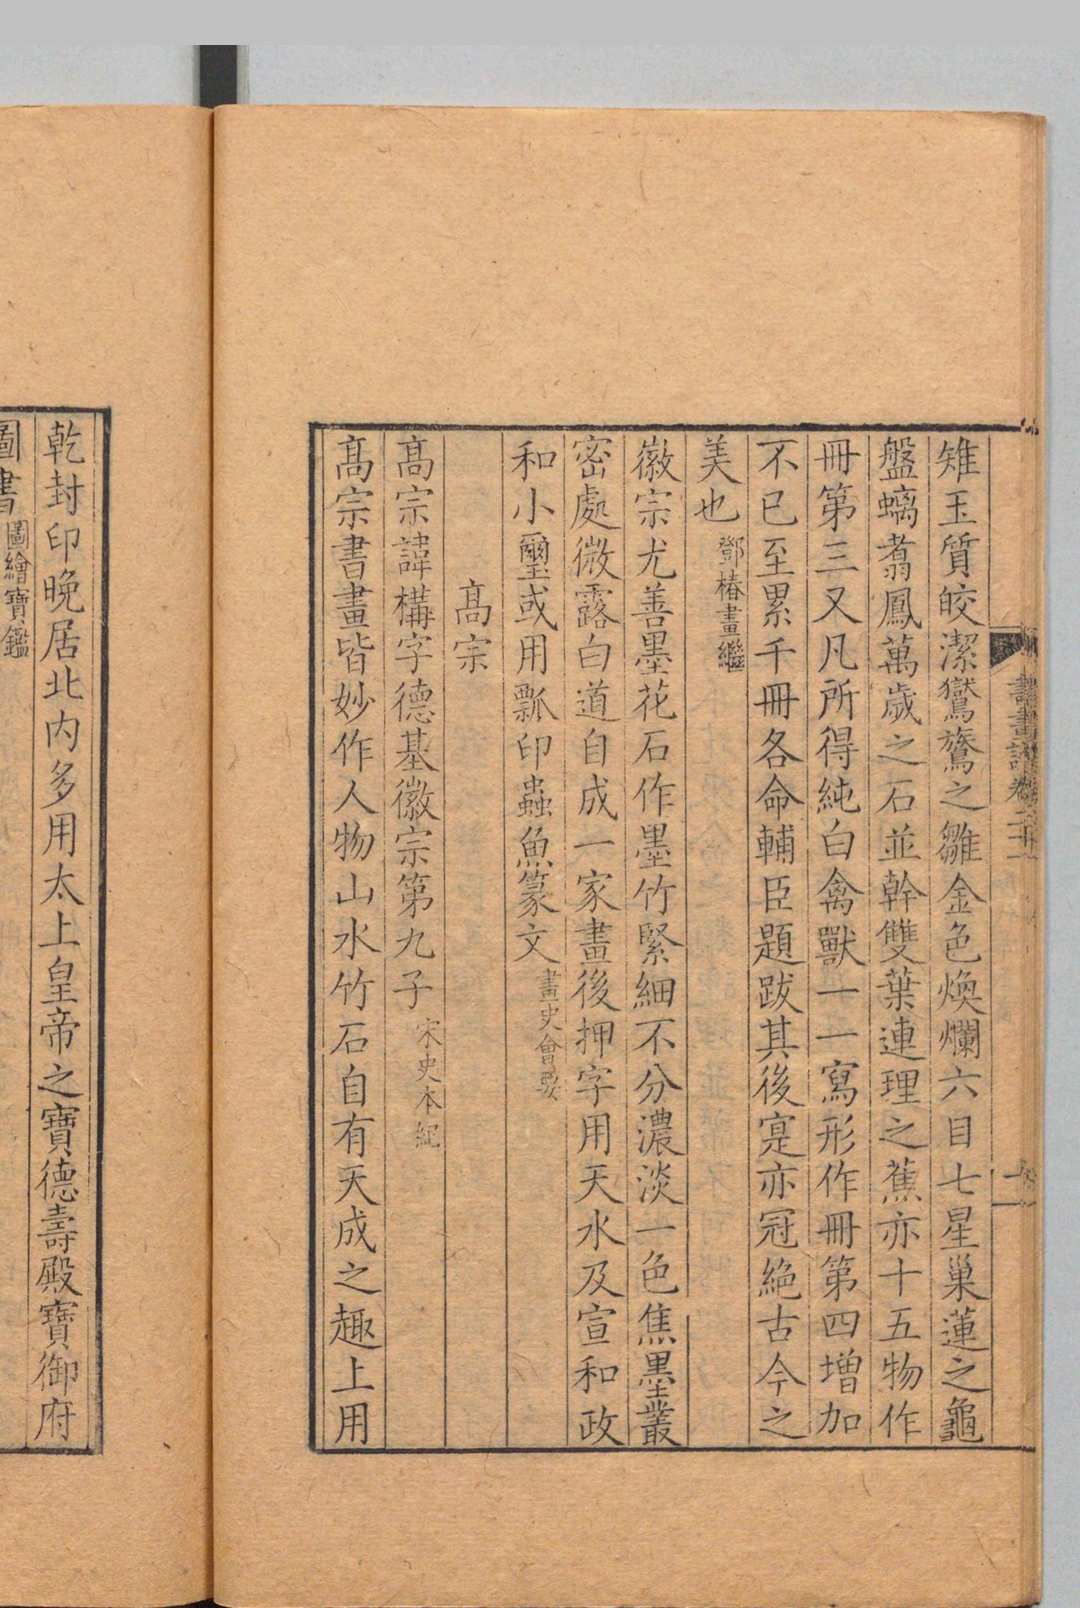 雉玉質皎潔鸑鷟之雛金色煥爛六目七星巢蓮之龜
盤螭翥鳳萬歲之石並幹雙葉連理之蕉亦十五物作
冊第三又凡所得純白禽獸一一寫形作冊第四增加
不已至累千冊各命輔臣題跋其後寔亦冠絕古今之
美也鄧椿畫繼
徽宗尤善墨花石作墨竹緊細不分濃淡一色焦墨叢
密處微露白道自成一家畫後押字用天水及宣和政
和小璽或用瓢印蟲魚篆文畫史會要
高宗
高宗諱構字德基徽宗第九子宋史本紀
高宗書畫皆妙作人物山水竹石自有天成之趣上用
乾封印晚居北內多用太上皇帝之寶德壽殿寶御府
圖書圖繪寶鑑